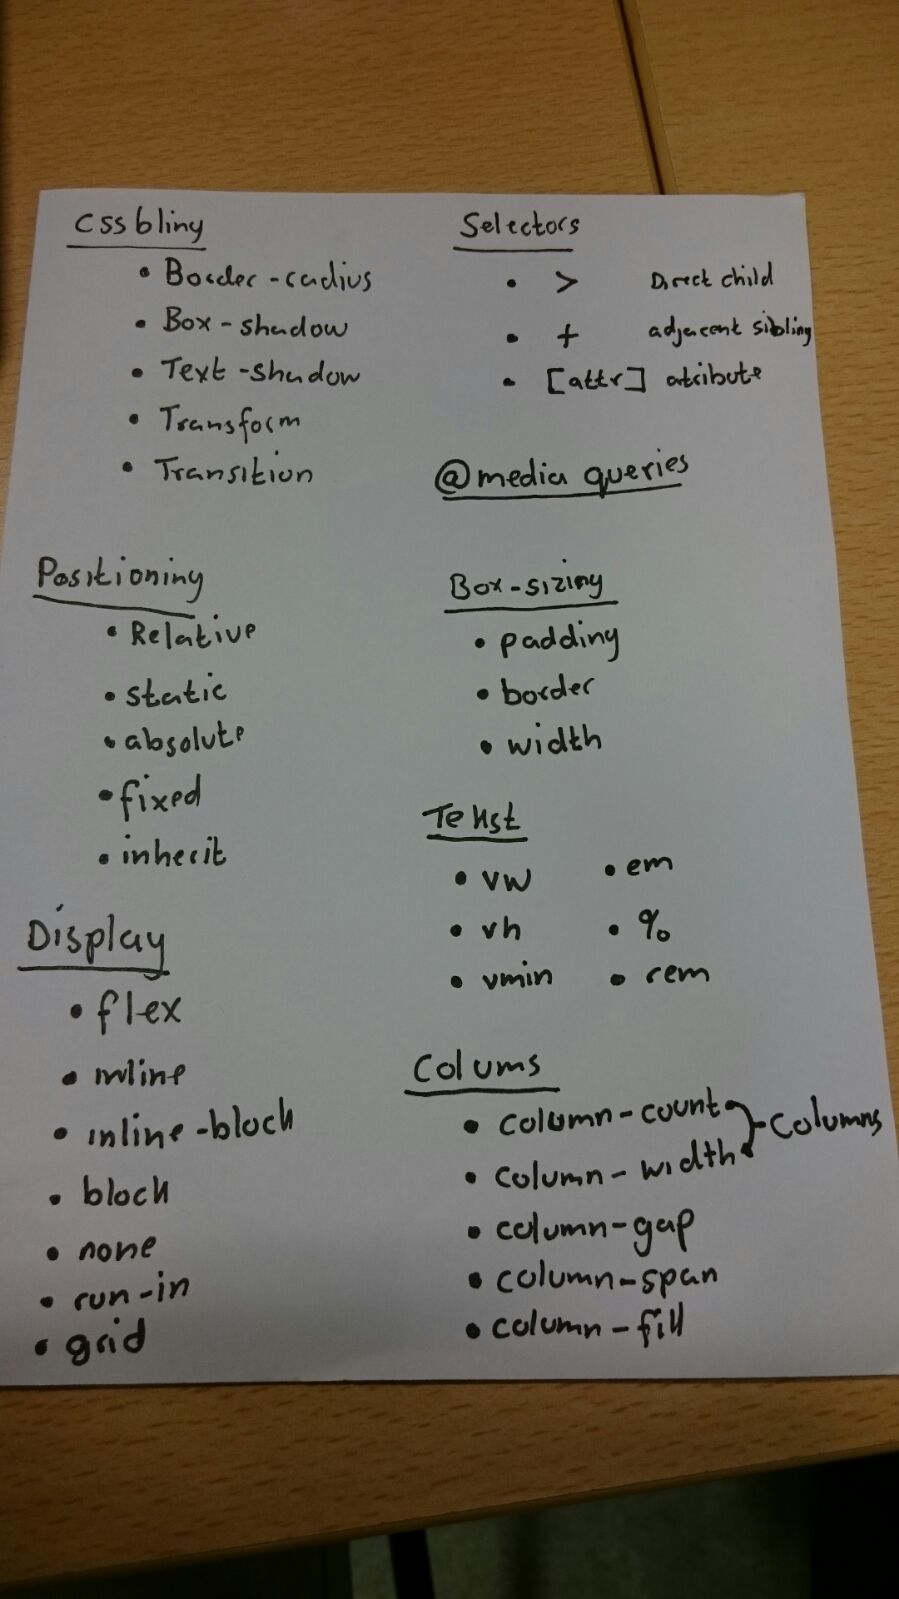 Css bling
• Border-radius
• Box-shadow
• Text-shadow
• Transform
• Transition
Positioning
• Relative
• static
• absolute
• fixed
• inherit
Display
• flex
• inline
• inline-block
• block
• none
• run-in
• grid
Selectors
• > Direct child
• + adjacent sibling
• [attr] atribute
@media queries
Box-sizing
• padding
• border
• width
Tekst
• vw • em
• vh • %
• vmin • rem
Colums
• column-count
• column-width
columns
• column-gap
• column-span
• column-fill